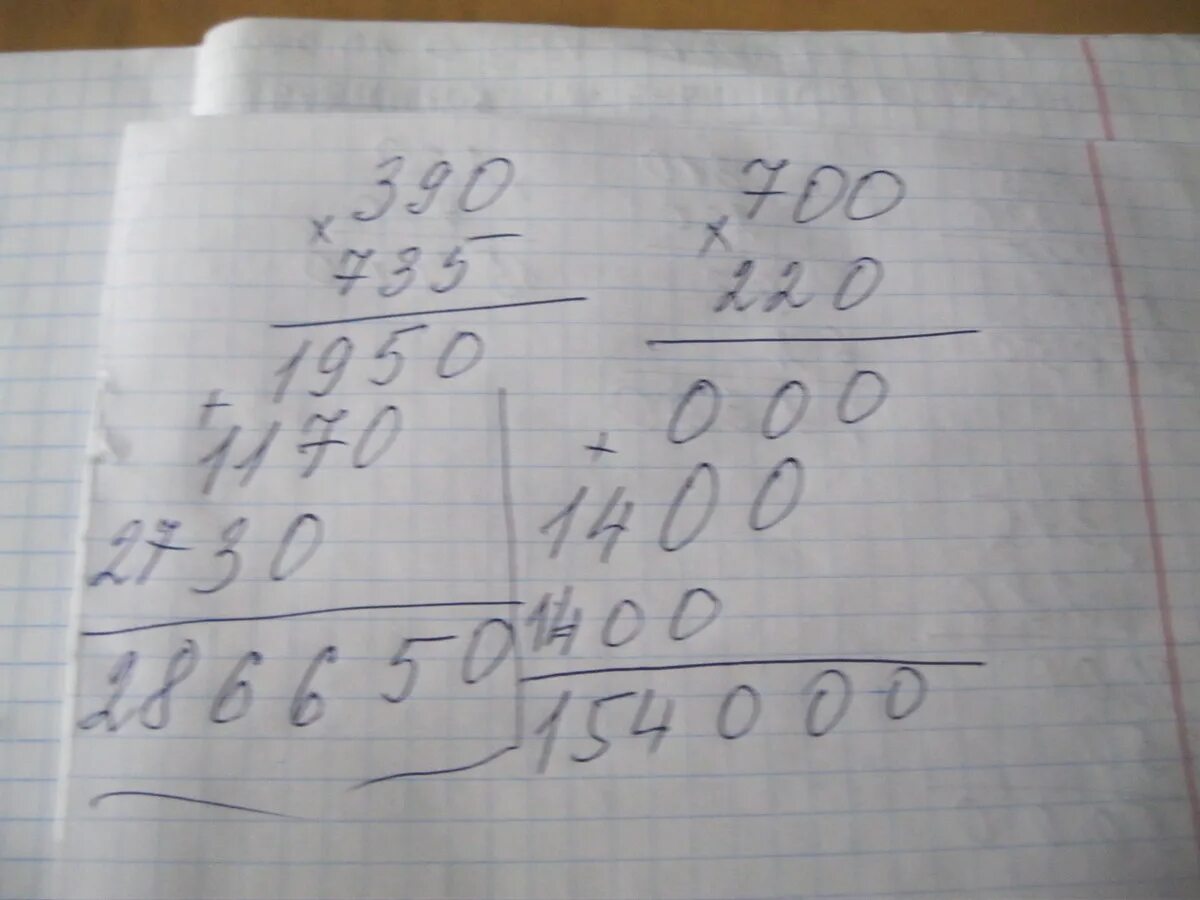 390
×
735
1950
+
1170
2730
286650
700
×
220
000
+
1400
1400
154000